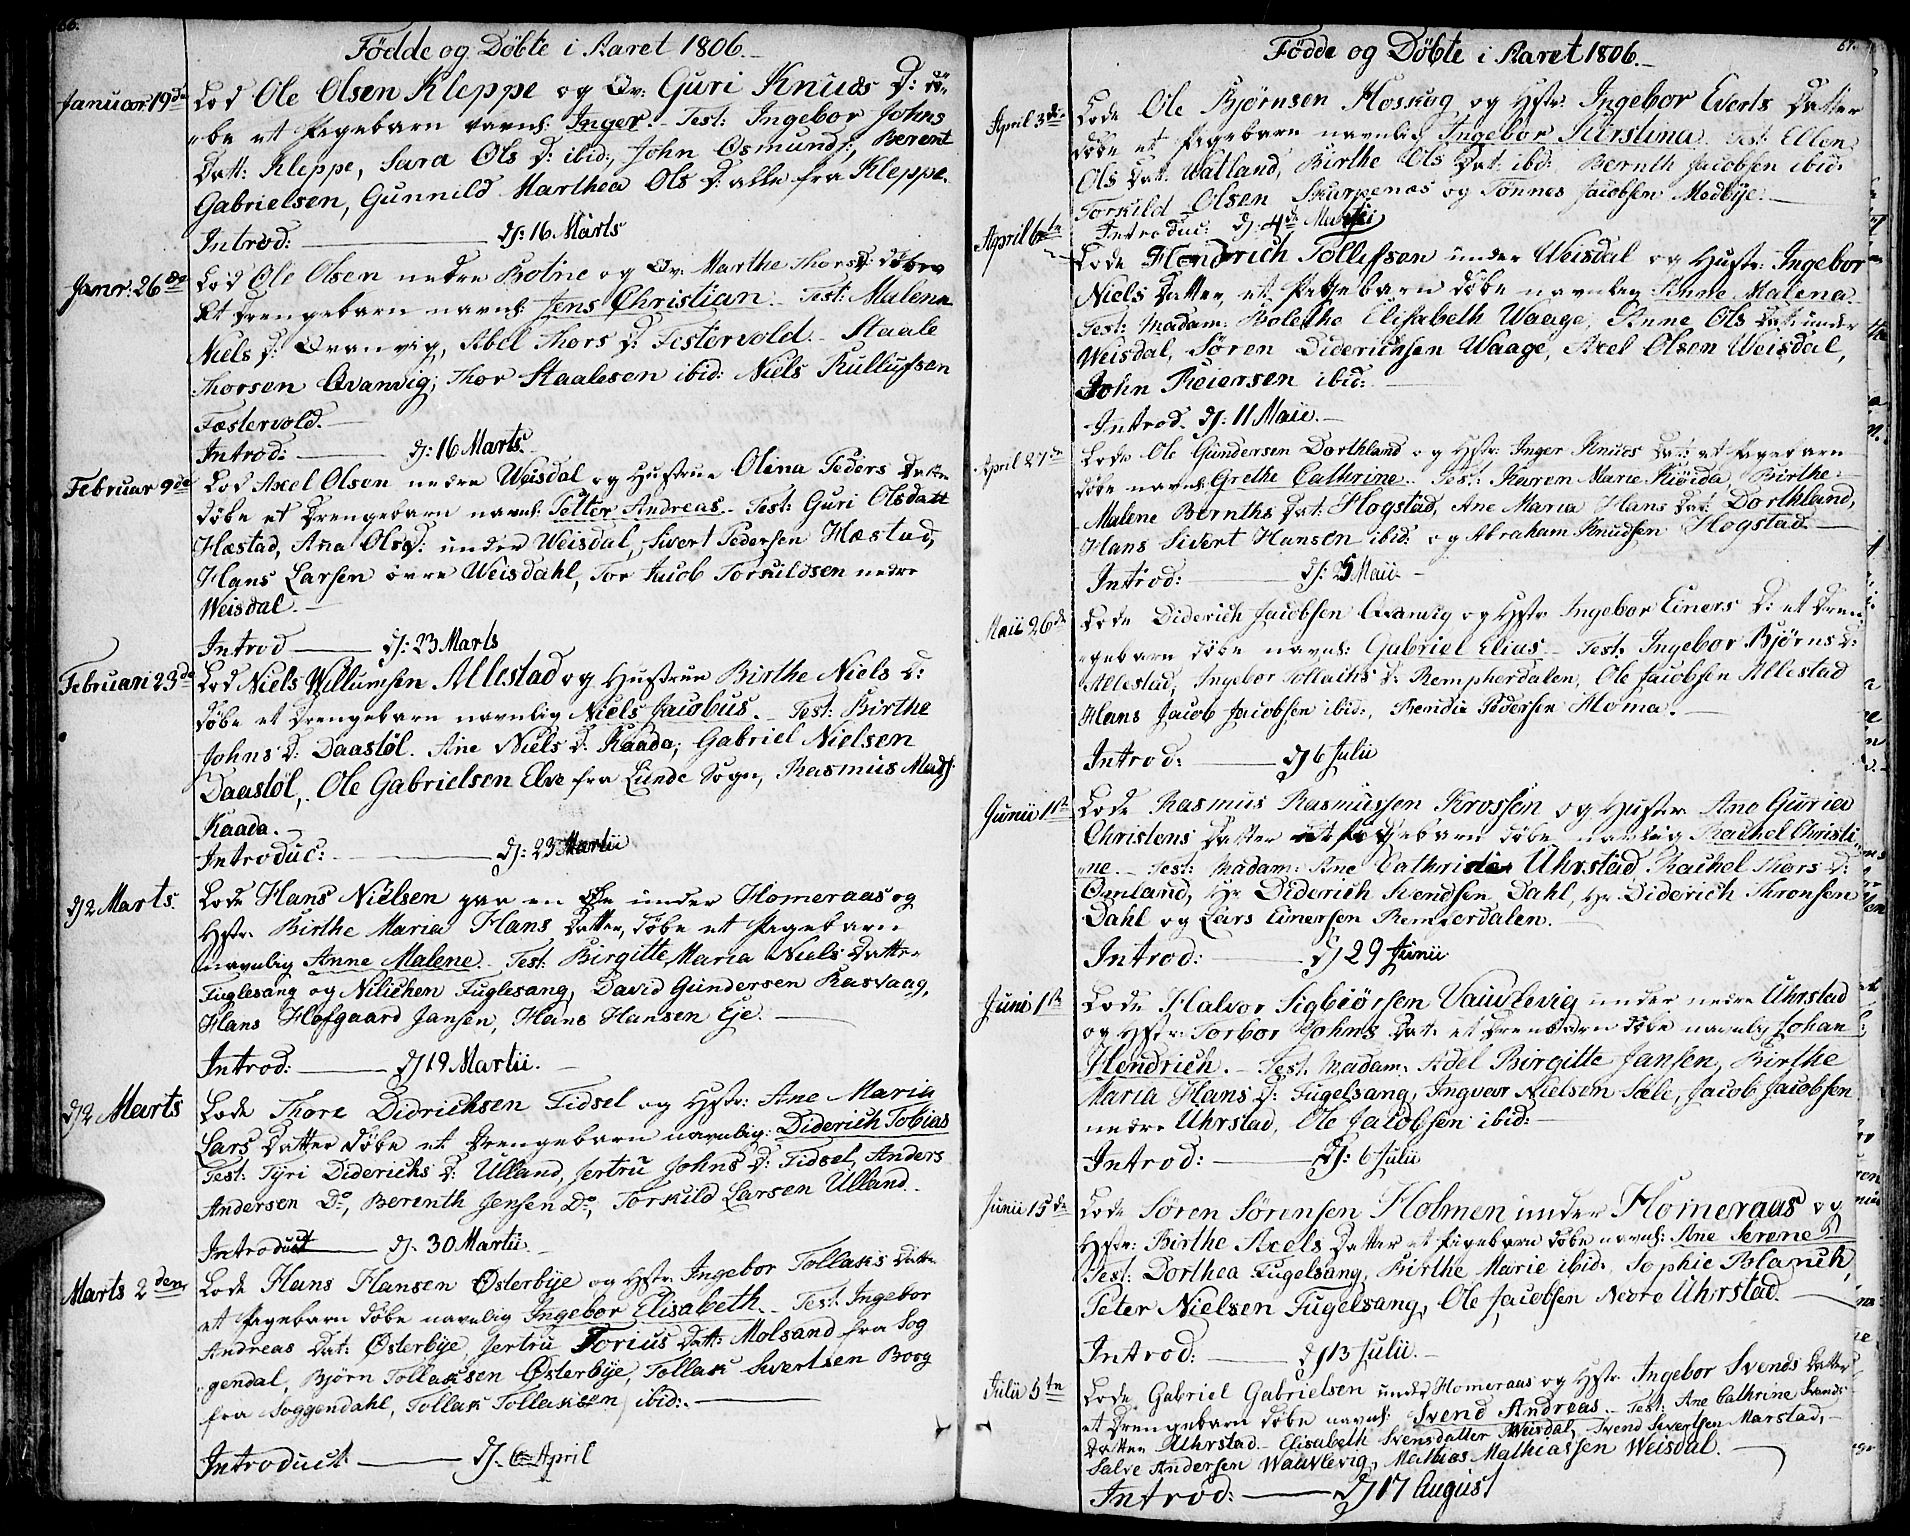 66.
Födde og Döbte i Aaret 1806.
Januar 19de Lod Ole Olsen Kleppe og Qv: Guri Knuds D: dö„
„be et Pigebarn navnl: Inger. Test: Ingebor Johns
Datt: Kleppe, Sara Ols D: ibid:, John Osmunds:, Berent
Gabrielsen, Gunnild Marthea Ols D: alle fra Kleppe.
Introd: d: 16 Marts
Janr: 26de Lod Ole Olsen nedre Botne og Qv: Marthe Thors D: döbe
et Drengebarn navnl: Jens Christian. Test: Malena
Niels D: Qvanvig, Abel Thors D: Festervold. Staale
Thorsen Qvanvig, Thor Staalesen ibid: Niels Rullufsen
Fæstervold.
Introd: d: 16 Marts
Februar 9de Lod Axel Olsen nedre Weisdal og Hustrue Olina Peders Datter
döbe et Drengebarn navnl: Petter Andreas. Test: Guri Olsdatt
Hæstad, Ana Ols D: under Weisdal, Sivert Pedersen Hæstad,
Hans Larsen övre Weisdahl, Tor Jacob Torkildsen nedre
Weisdal.
Introd d: 23 Marts
Februari 23de Lod Niels Willumsen Allestad og Hustrue Birthe Niels D:
döbe et Drengebarn navnlig Niels Jacobus. Test: Birthe
Johns D: Daastöl. Ane Niels D: Kaada, Gabriel Nielsen
Daastöl, Ole Gabrielsen Elve fra Lunde Sogn, Rasmus Mads:
Kaada.
Introduc: d: 23 Martii
d 2 Marts. Lode Hans Nielsen paa en Eie under Homeraas og
Hstr. Birthe Maria Hans Datter, döbe et Pigebarn
navnlig Anne Malene. Test: Birgitte Maria Niels Datter
Fuglesang og Nilichen Fuglesang, David Gundersen Rasvaag,
Hans Hofgaard Jansen, Hans Hansen Eje.
Introd: d 19 Martii.
d 2 Marts Lode Thore Didrichsen Tidsel og Hstr: Ane Maria
Lars Datter döbe et Drengebarn navnlig: Diderich Tobias
Test: Tyri Diderichs D: Ulland, Jertru Johns D: Tidsel, Anders
Andersen Do, Berenth Jensen Do, Torkild Larsen Ulland.
Introduct d. 30 Martii.
Marts 2den Lode Hans Hansen Østerbye og Hstr: Ingebor Tollaks Datter
et Pigebarn döbe navnlig Ingebor Elisabeth. Test: Ingebor
Andreas Dat: Østerbye, Jertru Torius Datt: Molsand fra Sog
„gendal, Bjørn Tollaksen Østerbye, Tollak Sivertsen Borg
fra Soggendahl, Tollak Tollaksen ibid:
Introduct d. 6te April
67.
Födde og Döbte i Aaret 1806.
April 3de Lode Ole Bjørnsen Hosskog og Hstr: Ingebor Everts Datter
döbe et Pigebarn navnlig Ingebor Kirstina. Test: Ellen
Ols Dat: Watland, Birthe Ols Dat: ibid: Bernth Jacobsen ibid:
Torkild Olsen Skarpenes og Tønnes Jacobsen Medbye.
Introduc: d: 4de Maii
April 6te Lode Hendrich Tollefsen under Weisdal og Hustr: Ingebor
Niels Datter et Pigebarn döbe navnlig Anne Malena.
Test: Madam: Bolethe Elisabeth Waage, Anne Ols Dat: under
Weisdal, Søren Diderichsen Waage, Axel Olsen Weisdal,
John Reiersen ibid:
Introd. d: 11 Maii.
April 27de Lode Ole Gundersen Dorthland og Hstr: Inger Knuds Dat: et Pigebarn
döbe navnl: Grethe Cathrine. Test: Karen Marie Kiöida, Birthe
Malene Bernths Dat: Hogstad, Ane Maria Hans Dat: Dorthland,
Hans Sivert Hansen ibid: og Abraham Knudsen Hogstad.
Introd: d: 25 Maii
Maii 26de Lode Diderich Jacobsen Qvanvig og Hstr Ingebor Einers D: et Dren
„gebarn döbe navnl: Gabriel Elias. Test: Ingebor Bjørns D:
Allestad, Ingebor Tollachs D: Rempherdalen, Ole Jacobsen Allestad
Hans Jacob Jacobsen ibid:, Reridia Pedersen Homa.
Introd: d 6 Julii
Junii 1te Lode Rasmus Rasmussen Krossen og Hustr Ane Guria
Christens Datter et Pigebarn döbe navnlig Rachel Christi
„ne. Test: Madam: Ane Cathrine Uhrstad, Rachel Thors D:
Omland, Hr Diderich Svendsen Dahl, Hr Diderich Thronsen
Dahl og Lars Einersen Remierdalen.
Introd: d 29 Junii
Juni 1te Lode Halvor Sigbiörsen Vauvlevig under nedre Uhrstad
og Hstr: Torbor Johns Dat: et Drenbarn döbe navnlig Johan
Hendrich. Test: Madam: Adel Birgitte Jansen, Birthe
Maria Hans D: Fugelsang, Ingvar Nielsen Sæle, Jacob Jacobsen
nedre Uhrstad, Ole Jacobsen ibid:
Introd: d: 6 Julii
Junii 15de Lode Søren Sørensen Holmen under Homeraas og
Hstr: Birthe Axels Datter et Pigebarn döbe navnl: Ane Serene
Test: Dorthea Fugelsang, Birthe Marie ibid:, Sophie Blanck,
Peter Nielsen Fugelsang, Ole Jacobsen Nedre Uhrstad.
Introd: d 13 Julii.
Julii 5te Lode Gabriel Gabrielsen under Homeraas og Hstr Ingebor Svends Datter
et Drengebarn döbe navnl: Svend Andreas. Test: Ane Cathrine Svends
Datter Uhrstad. Elisabeth Svensdatter Weisdal, Svend Sivertsen Marstad,
Salve Andersen Wauvlevig, Mathias Mathiassen Weisdal.
Introd: d 17 August